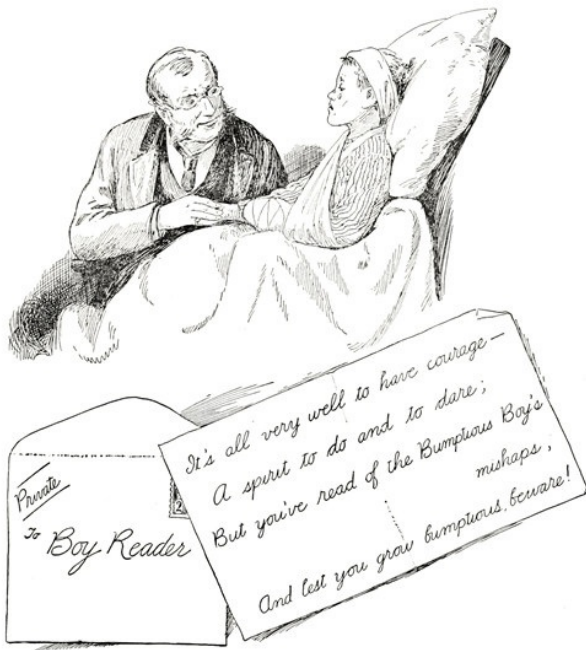 Private
To Boy Reader
2
It's all very well to have courage—
A spirit to do and to dare;
But you've read of the Bumptious Boy's
mishaps;
And lest you grow bumptious, beware!